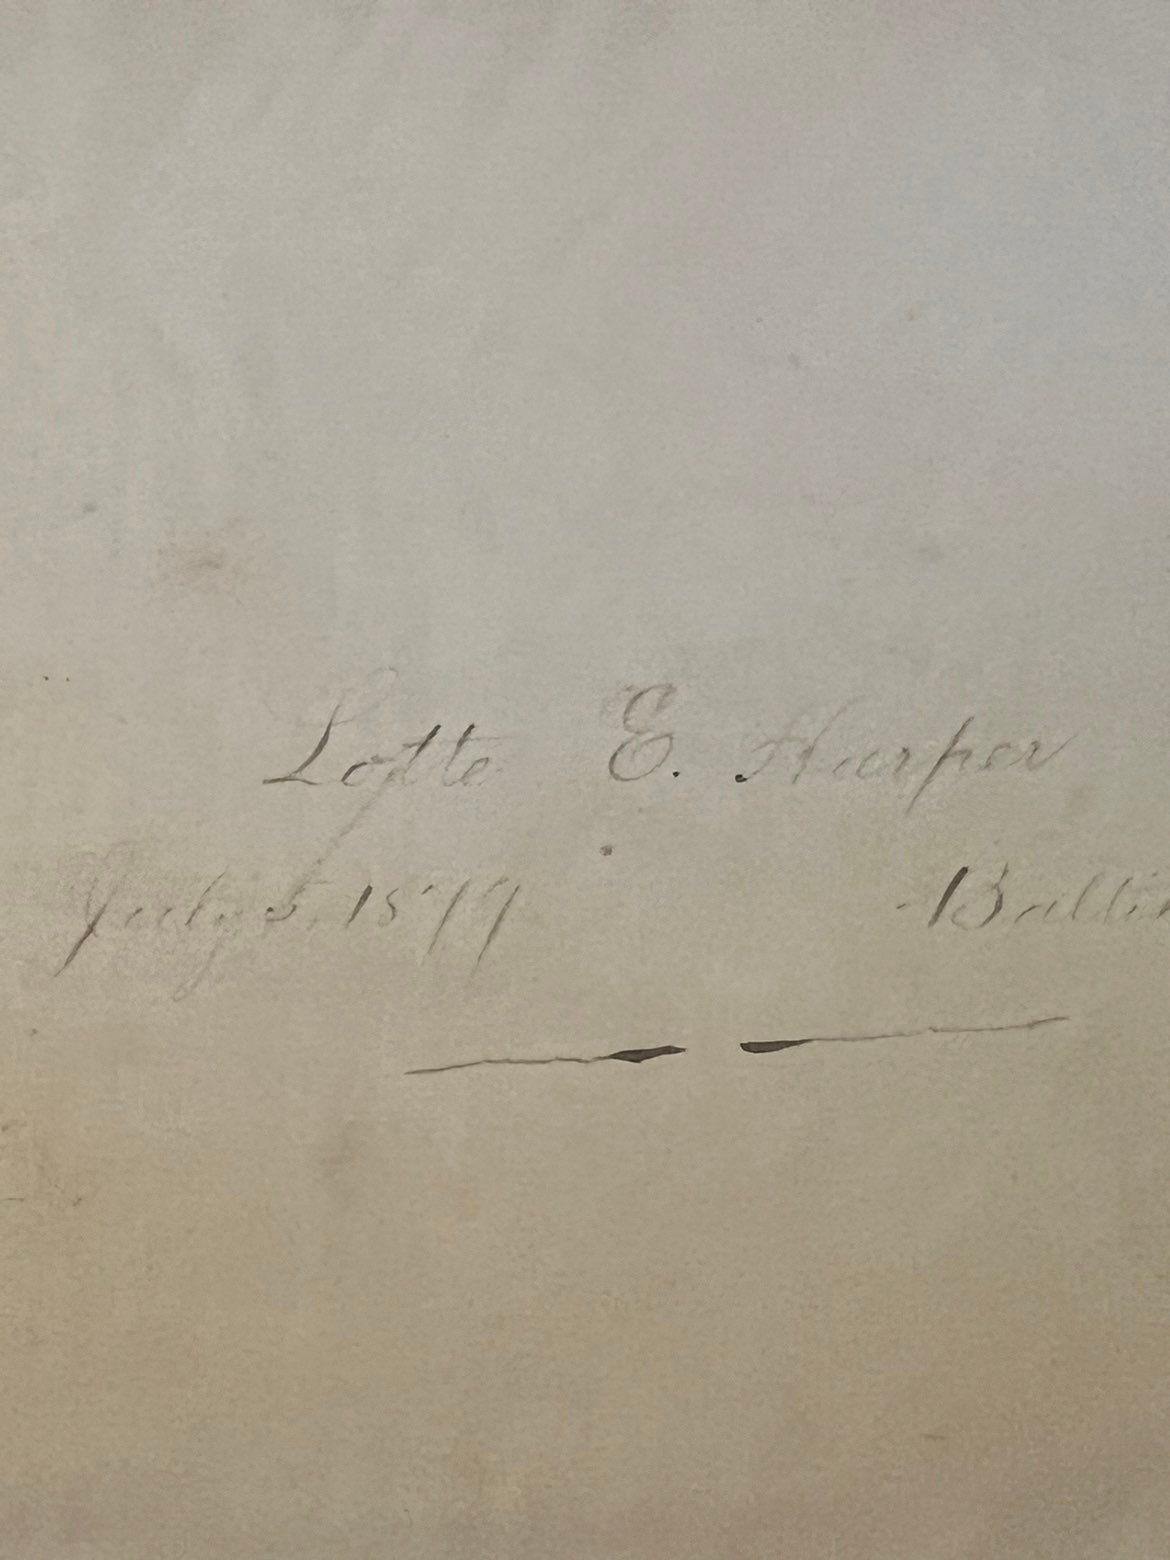 Lotte E. Harper
July 5, 1879 Baltim